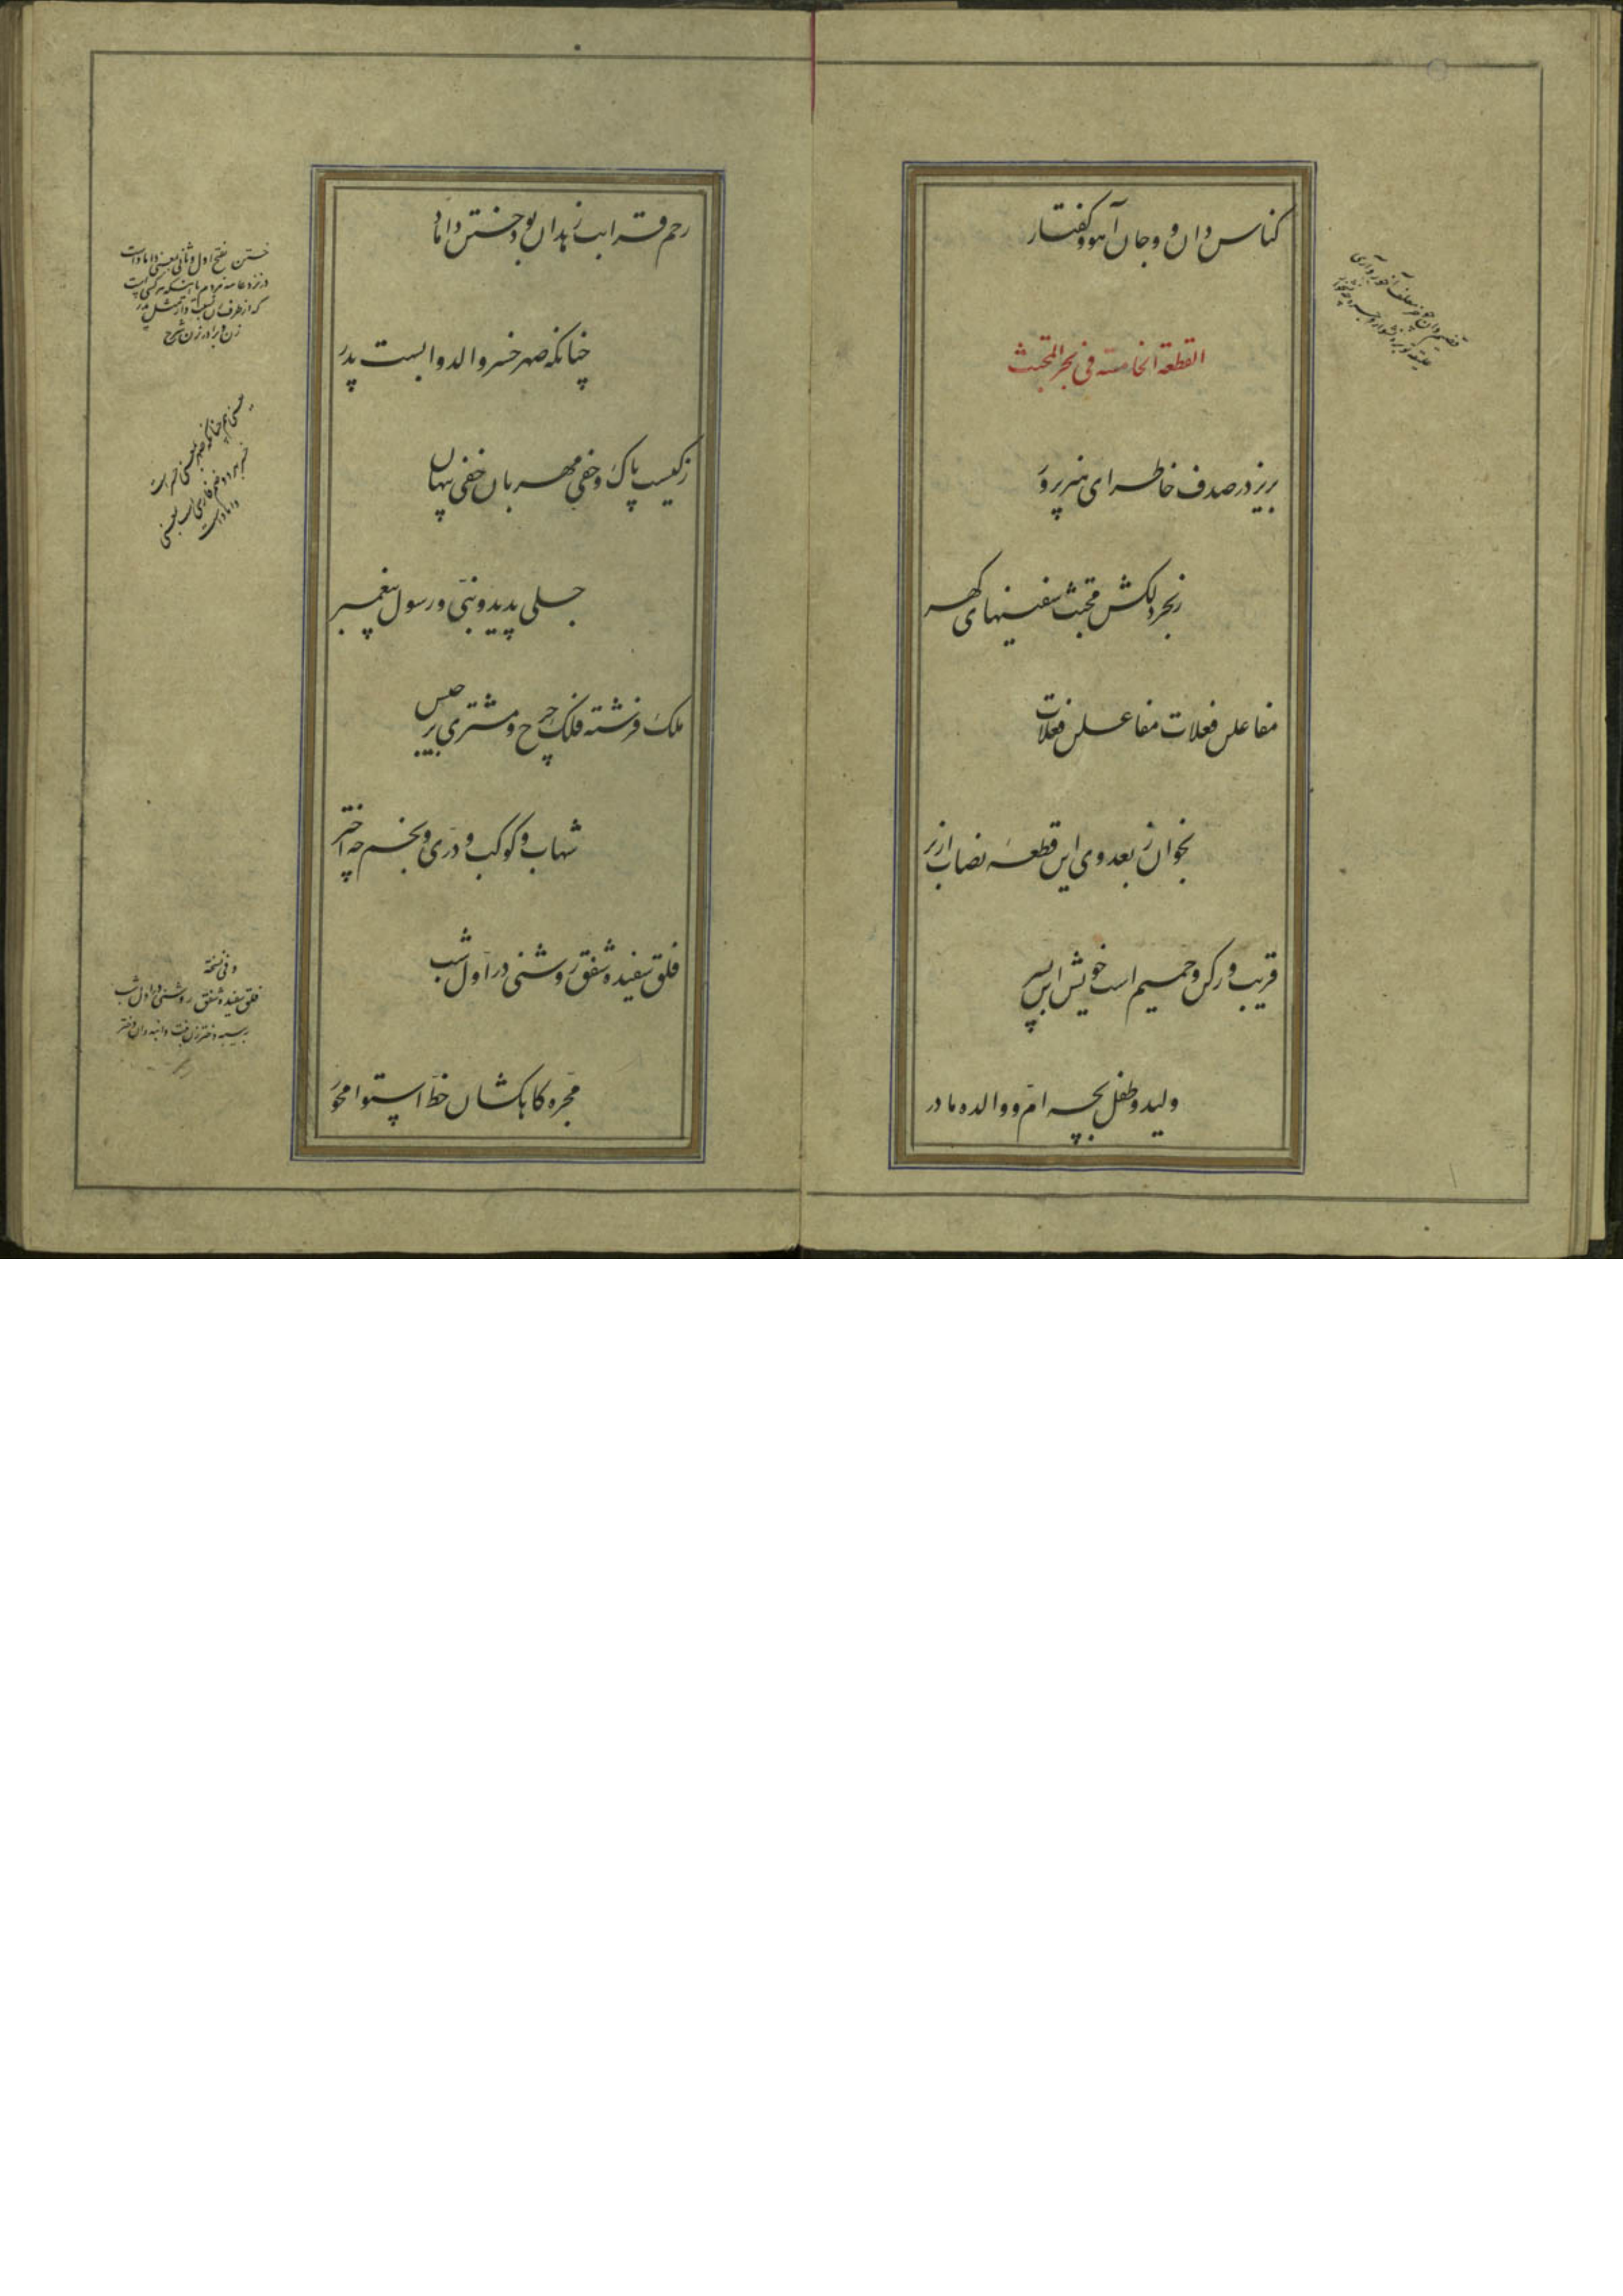 کناس دان و وجان آهو و کفتار
القطعة الخامسة فی بحر المجتث
بریز در صدف خاطر ای هنر پرور
ز بحر دلکش مجتث سفینهای گهر
مفاعلن فعلات مفاعلن فعلات
بخوان ز بعد وی این قطعه نصاب از بر
قریب و رکن و حمیم است خویش ابن پسر
ولید و طفل بچه ام و والده مادر
رحم قرابت زهدان بود ختن داماد
چنانکه صهر خسر والد و ابست پدر
زکیست پاک و حفی مهربان خفی پنهان
جلی پدید و نبی و رسول پیغمبر
ملک فرشته فلک چرخ و مشتری برجیس
شهاب و کوکب و دری و نجم چه اختر
فلق سفیده و شفق روشنی در اول شب
مجره کاهکشان خط استوا محور
ختن بفتح اول و ثانی بمعنی داماد است
و نزد عامه مردم
که از طرف زن مثل پدر
زن و برادر زن شرح
وفی نسخة
فلق سفیده و شفق روشنی در اول شب